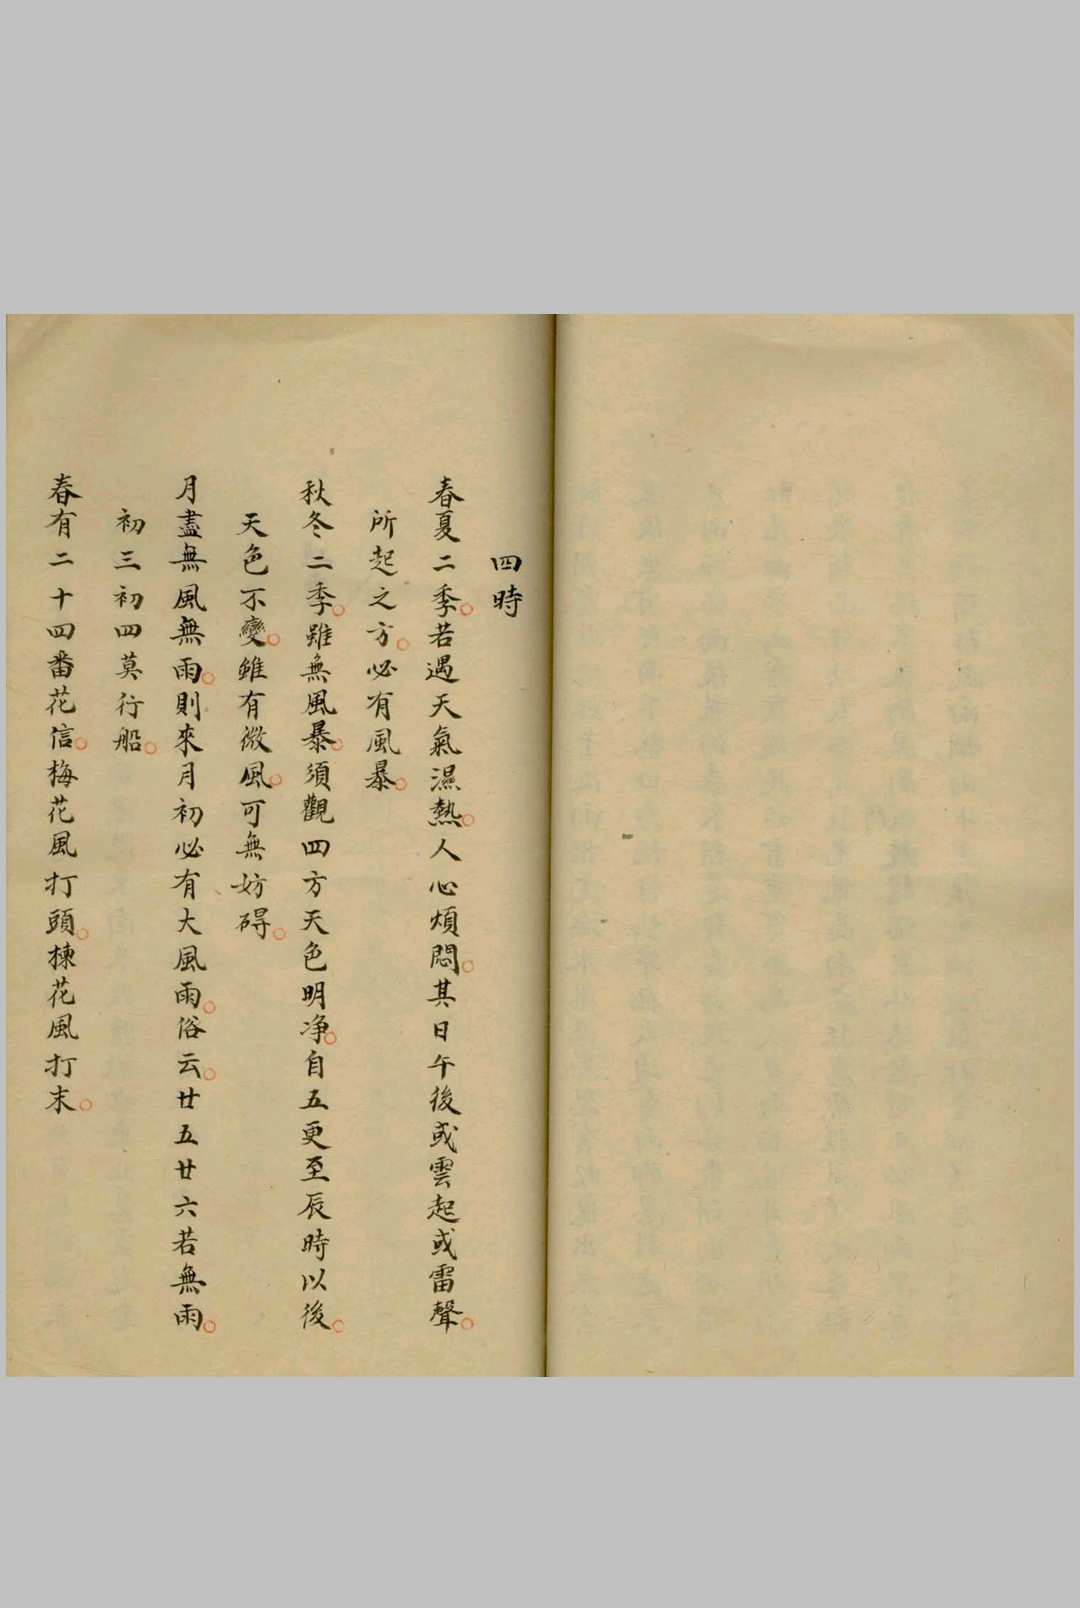 四時
春夏二季若遇天氣濕熱人心煩悶其日午後或雲起或雷聲
所起之方必有風暴
秋冬二季雖無風暴須觀四方天色明净自五更至辰時以後
天色不變雖有微風可無妨碍
月盡無風無雨則來月初必有大風雨俗云廿五廿六若無雨
初三初四莫行船
春有二十四番花信梅花風打頭楝花風打末